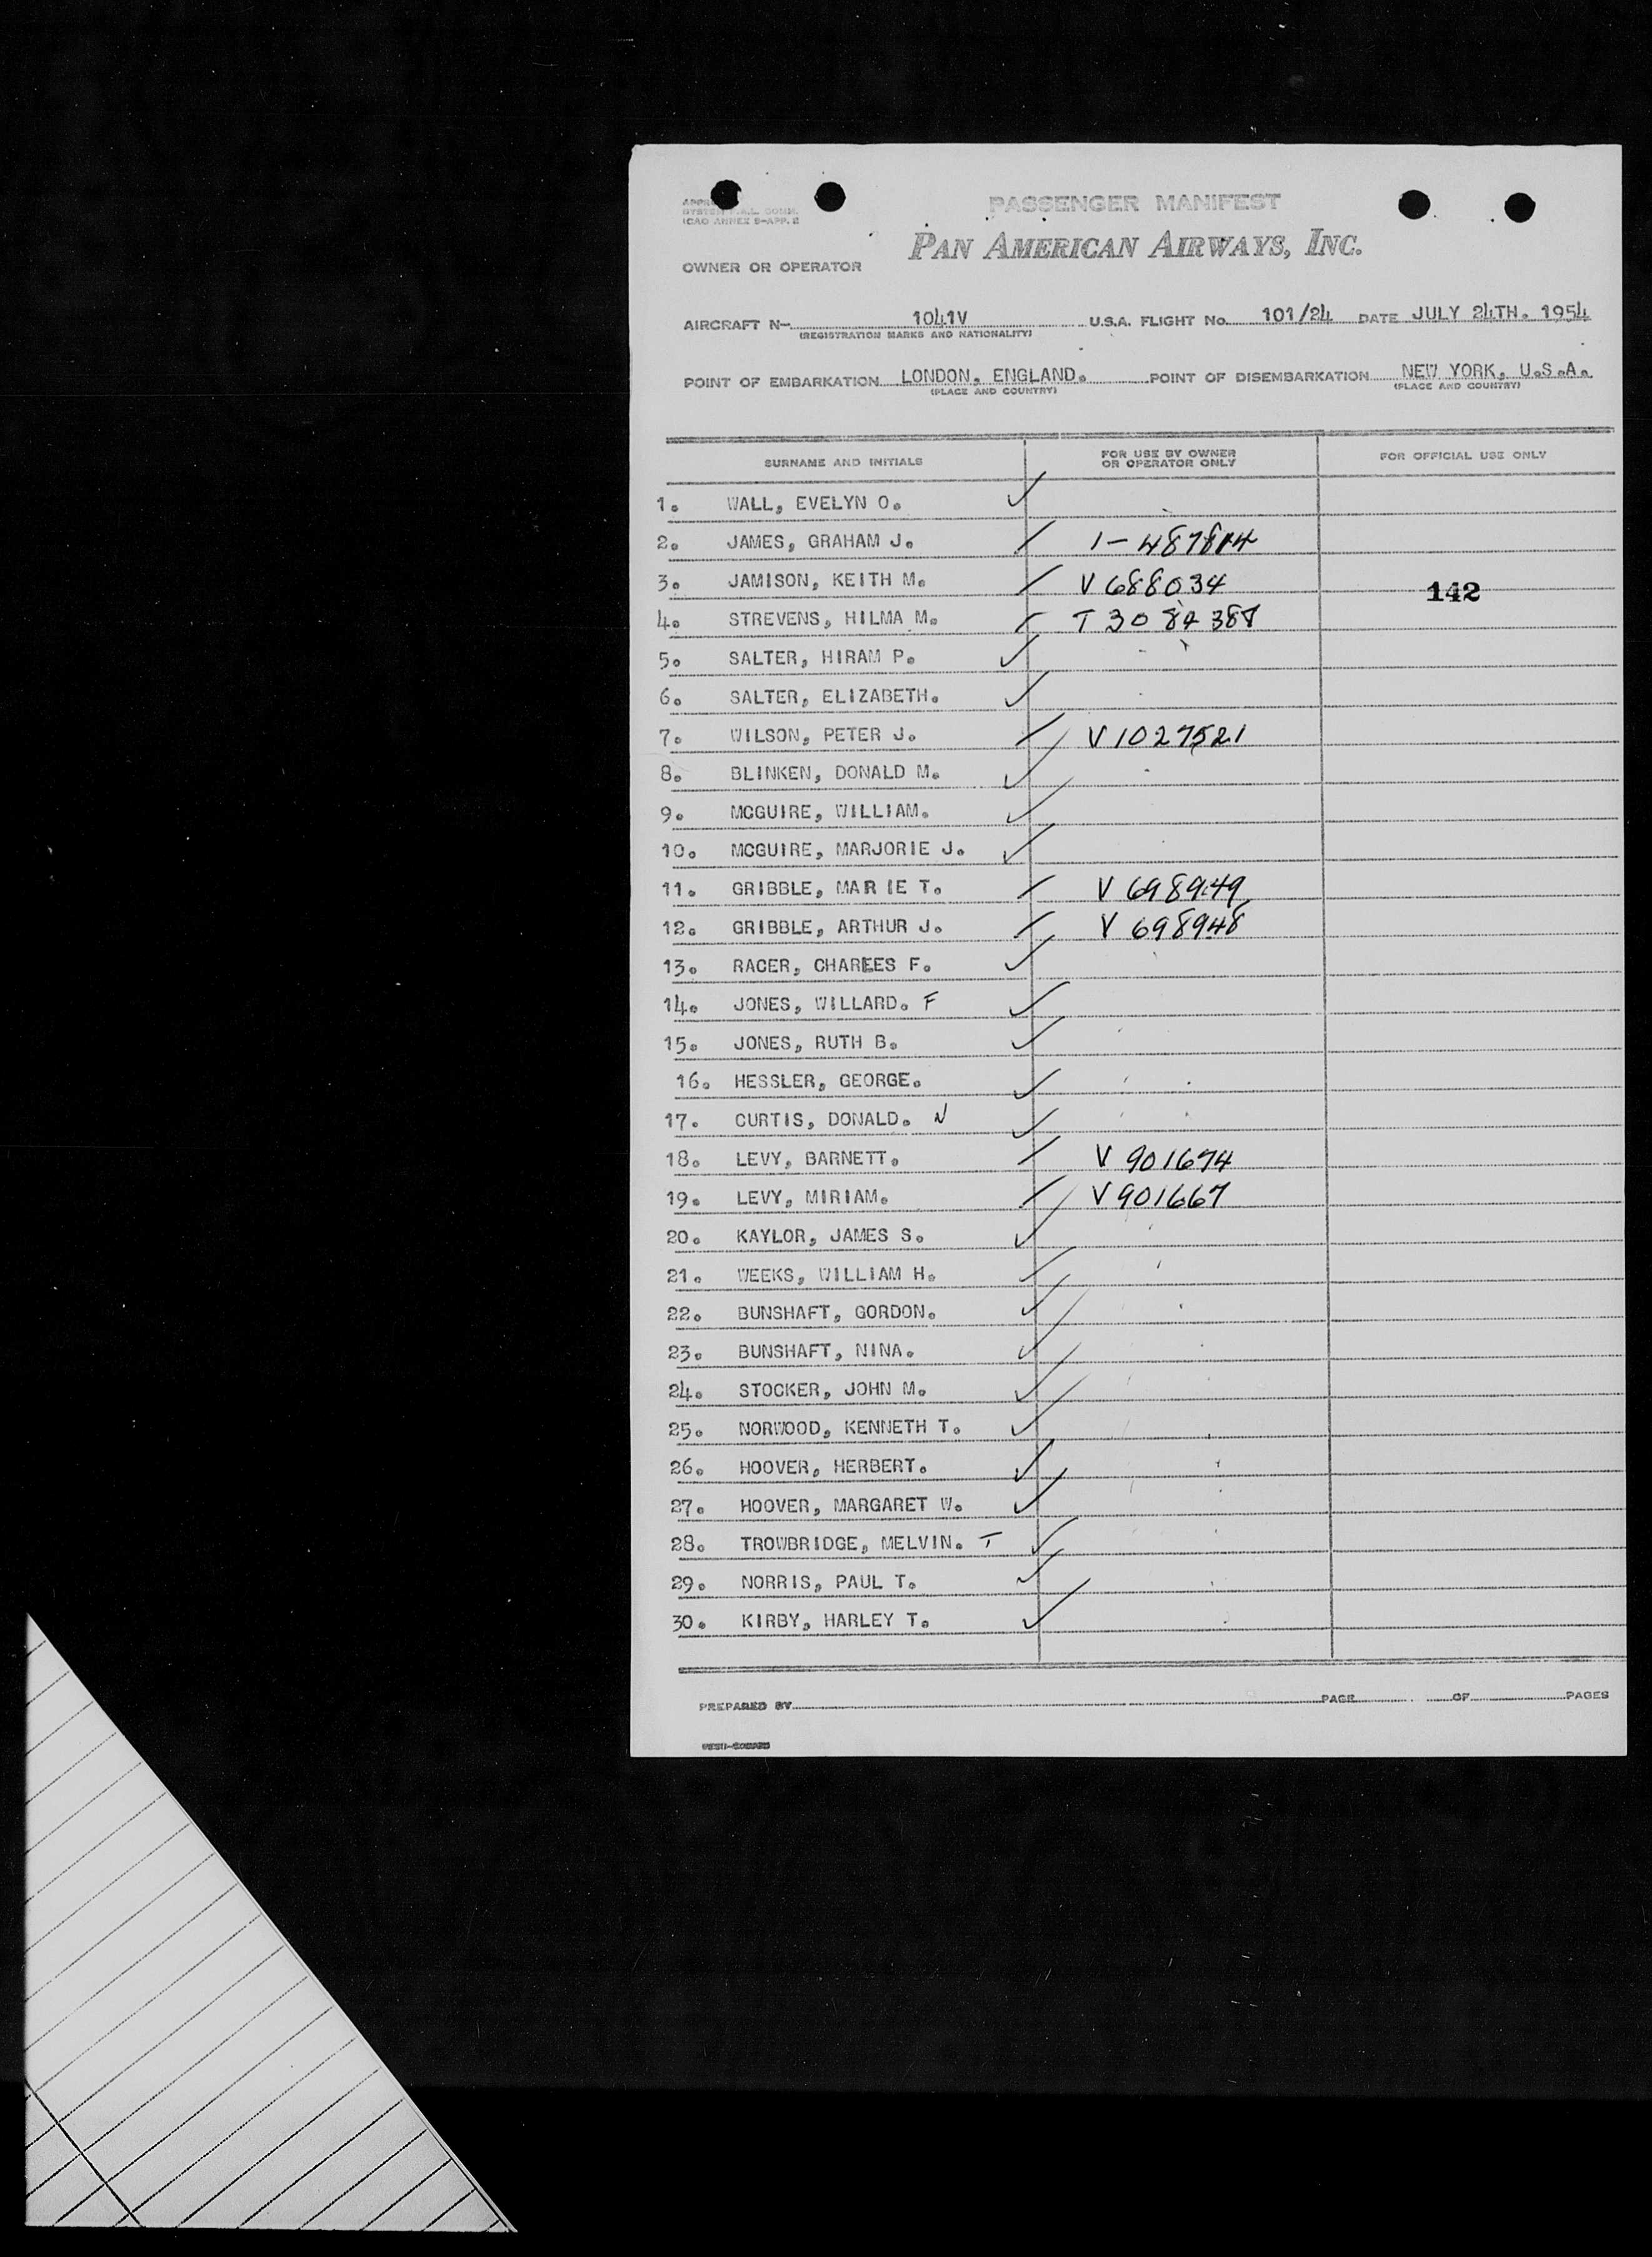 PASSENGER MANIFEST
ICAO ANNEX 9-APP. E
PAN AMERICAN AIRWAYS, INC.
OWNER OR OPERATOR
AIRCRAFT N- 1041V U.S.A. FLIGHT No. 101/24 DATE JULY 24TH. 1954
(REGISTRATION MARKS AND NATIONALITY)
POINT OF EMBARKATION LONDON, ENGLAND. POINT OF DISEMBARKATION NEW YORK, U.S.A.
(PLACE AND COUNTRY) (PLACE AND COUNTRY)
SURNAME AND INITIALS FOR USE BY OWNER OR OPERATOR ONLY FOR OFFICIAL USE ONLY
1. WALL, EVELYN O. ✓
2. JAMES, GRAHAM J. /
3. JAMISON, KEITH M. / V 688034 142
4. STREVENS, HILMA M. /
5. SALTER, HIRAM P. ✓
6. SALTER, ELIZABETH. ✓
7. WILSON, PETER J. / V 1027521
8. BLINKEN, DONALD M. ✓
9. MCGUIRE, WILLIAM. ✓
10. MCGUIRE, MARJORIE J. ✓
11. GRIBBLE, MARIE T. / V 698949
12. GRIBBLE, ARTHUR J. / V 698948
13. RACER, CHARLES F. ✓
14. JONES, WILLARD. F ✓
15. JONES, RUTH B. ✓
16. HESSLER, GEORGE. ✓
17. CURTIS, DONALD. N ✓
18. LEVY, BARNETT. / V 901674
19. LEVY, MIRIAM. / V 901667
20. KAYLOR, JAMES S. ✓
21. WEEKS, WILLIAM H. ✓
22. BUNSHAFT, GORDON. ✓
23. BUNSHAFT, NINA. ✓
24. STOCKER, JOHN M. ✓
25. NORWOOD, KENNETH T. ✓
26. HOOVER, HERBERT. ✓
27. HOOVER, MARGARET W. ✓
28. TROWBRIDGE, MELVIN. T ✓
29. NORRIS, PAUL T. ✓
30. KIRBY, HARLEY T. ✓
PREPARED BY PAGE OF PAGES